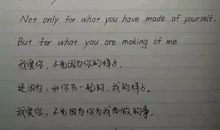 Not only for what you have made of yourself,
But for what you are making of me
我爱你，不光因为你的样子，
还因为，和你在一起时，我的样子。
我爱你，不光因为你为我而做的事，